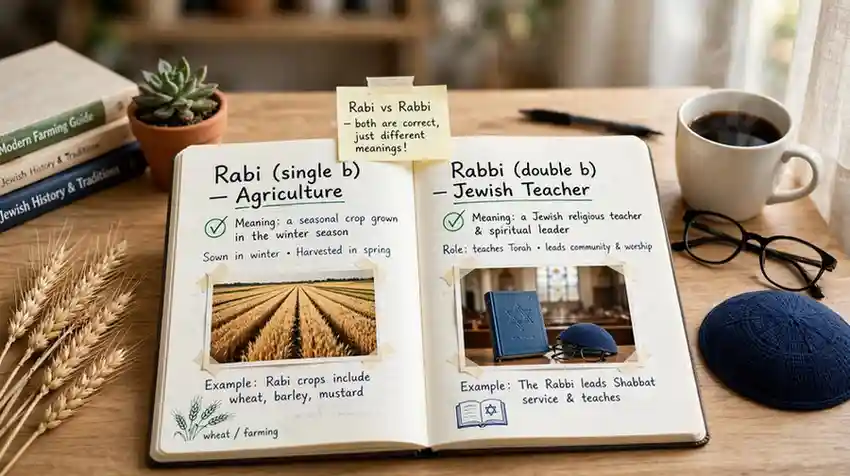 Modern Farming Guide
Jewish History & Traditions
Jewish History & Traditions
Rabi vs Rabbi
– both are correct,
just different
meanings!
Rabi (single b)
– Agriculture
Meaning: a seasonal crop grown
in the winter season
Sown in winter • Harvested in spring
Example: Rabi crops include
wheat, barley, mustard
wheat / farming
Rabbi (double b)
– Jewish Teacher
Meaning: a Jewish religious teacher
& spiritual leader
Role: teaches Torah • leads community & worship
Example: The Rabbi leads Shabbat
service & teaches